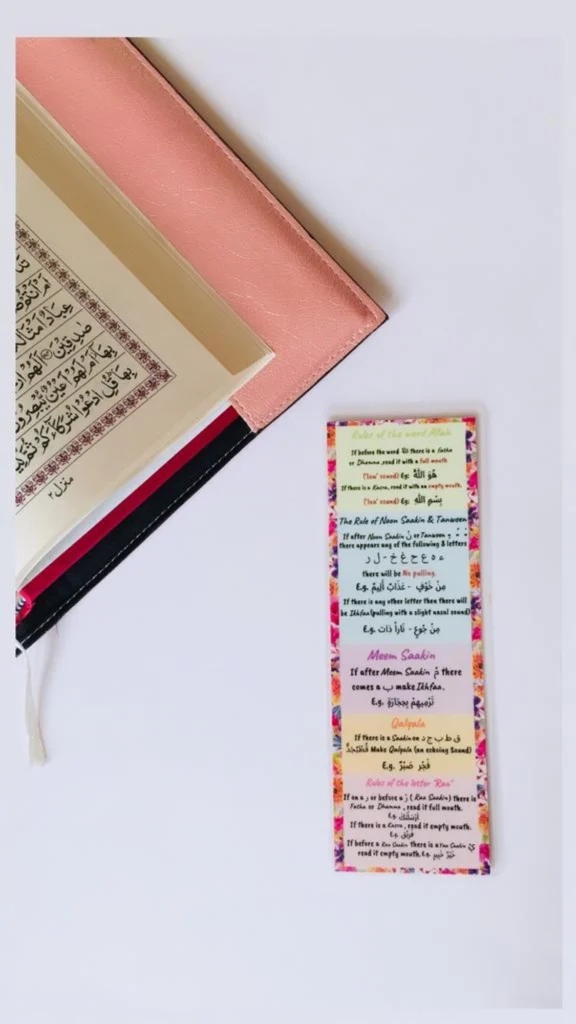 عباد امثالكم
صدقين
بها قل ادعوا شركاءكم
منزل٢
Rules of the word Allah
If before the word الله there is a Fatha
or Dhamma, read it with a full mouth
هُوَ اللهُ
If there is a Kasra, read it with an empty mouth.
بِسْمِ اللهِ
The Rule of Noon Saakin & Tanween
If after Noon Saakin نْ or Tanween
there appears any of the following 8 letters
ء ه ع ح غ خ - ل ر
there will be No pulling.
E.g. مِنْ خَوْفٍ - عَذَابٌ أَلِيمٌ
If there is any other letter then there will
be Ikhfaa (pulling with a slight nasal sound)
E.g. مِنْ جُوعٍ - نَاراً ذَاتَ
Meem Saakin
If after Meem Saakin مْ there
comes a ب make Ikhfaa.
E.g. تَرْمِيهِمْ بِحِجَارَةٍ
Qalqala
If there is a Saakin on ق ط ب ج د
Make Qalqala (an echoing Sound)
E.g. فَجْر صَبْرٌ
Rules of the letter "Raa"
If on a ر or before a رْ (Raa Saakin) there is
Fatha or Dhamma, read it full mouth.
E.g.
If there is a Kasra, read it empty mouth.
E.g.
If before a Raa Saakin there is a Yaa Saakin يْ
read it empty mouth. E.g.